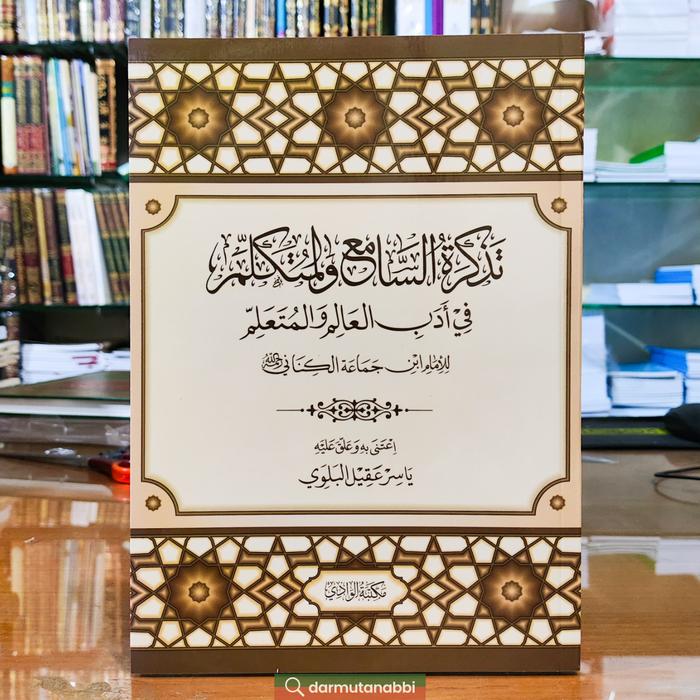 تَذْكِرَةُ السَّامِعِ وَالمُتَكَلِّمِ
فِي أَدَبِ العَالِمِ وَالمُتَعَلِّمِ
لِلإِمَامِ ابْنِ جَمَاعَة الكِنَانِي رحمه الله
اِعْتَنَى بِهِ وَعَلَّقَ عَلَيْهِ
يَاسِر عَقِيل البَلَوِي
مكتبة الوادي
darmutanabbi